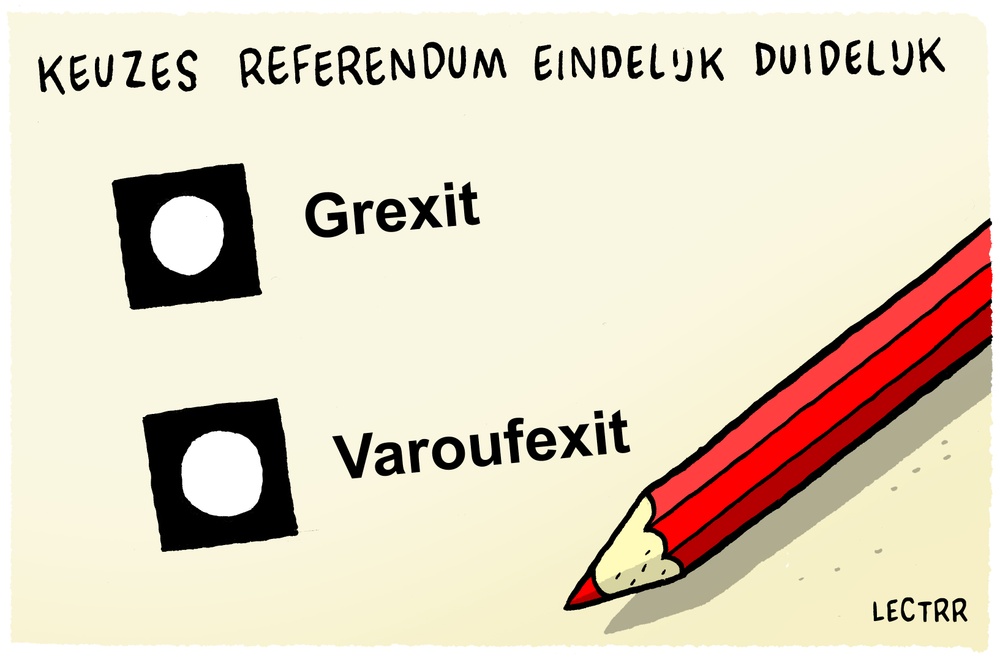 KEUZES REFERENDUM EINDELIJK DUIDELIJK
Grexit
Varoufexit
LECTRR